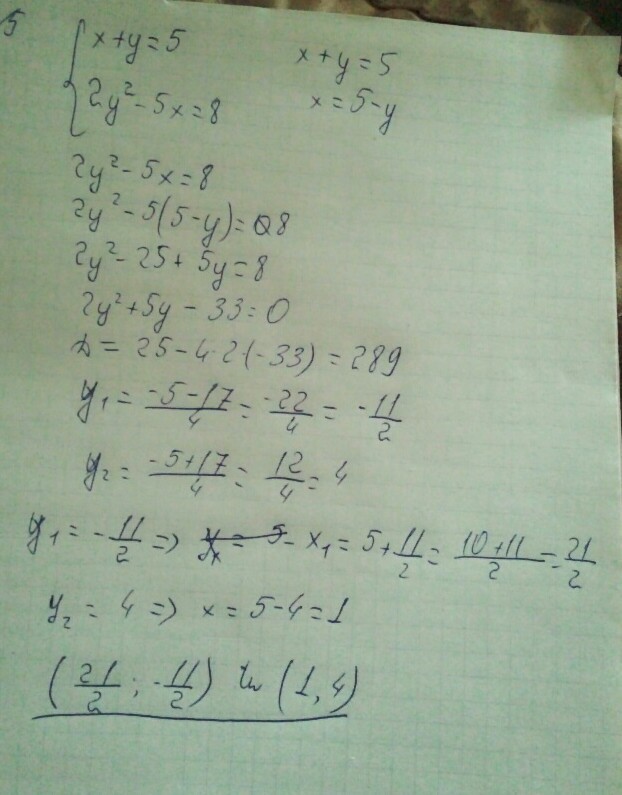 5
{ x+y=5      x+y=5
2y²-5x=8      x=5-y
2y²-5x=8
2y²-5(5-y)=8
2y²-25+5y=8
2y²+5y-33=0
D=25-4·2(-33)=289
y₁=(-5-17)/4=-22/4=-11/2
y₂=(-5+17)/4=12/4=4
y₁=-11/2=> x₁=5+11/2=(10+11)/2=21/2
y₂=4=> x=5-4=1
(21/2;-11/2) և (1,4)